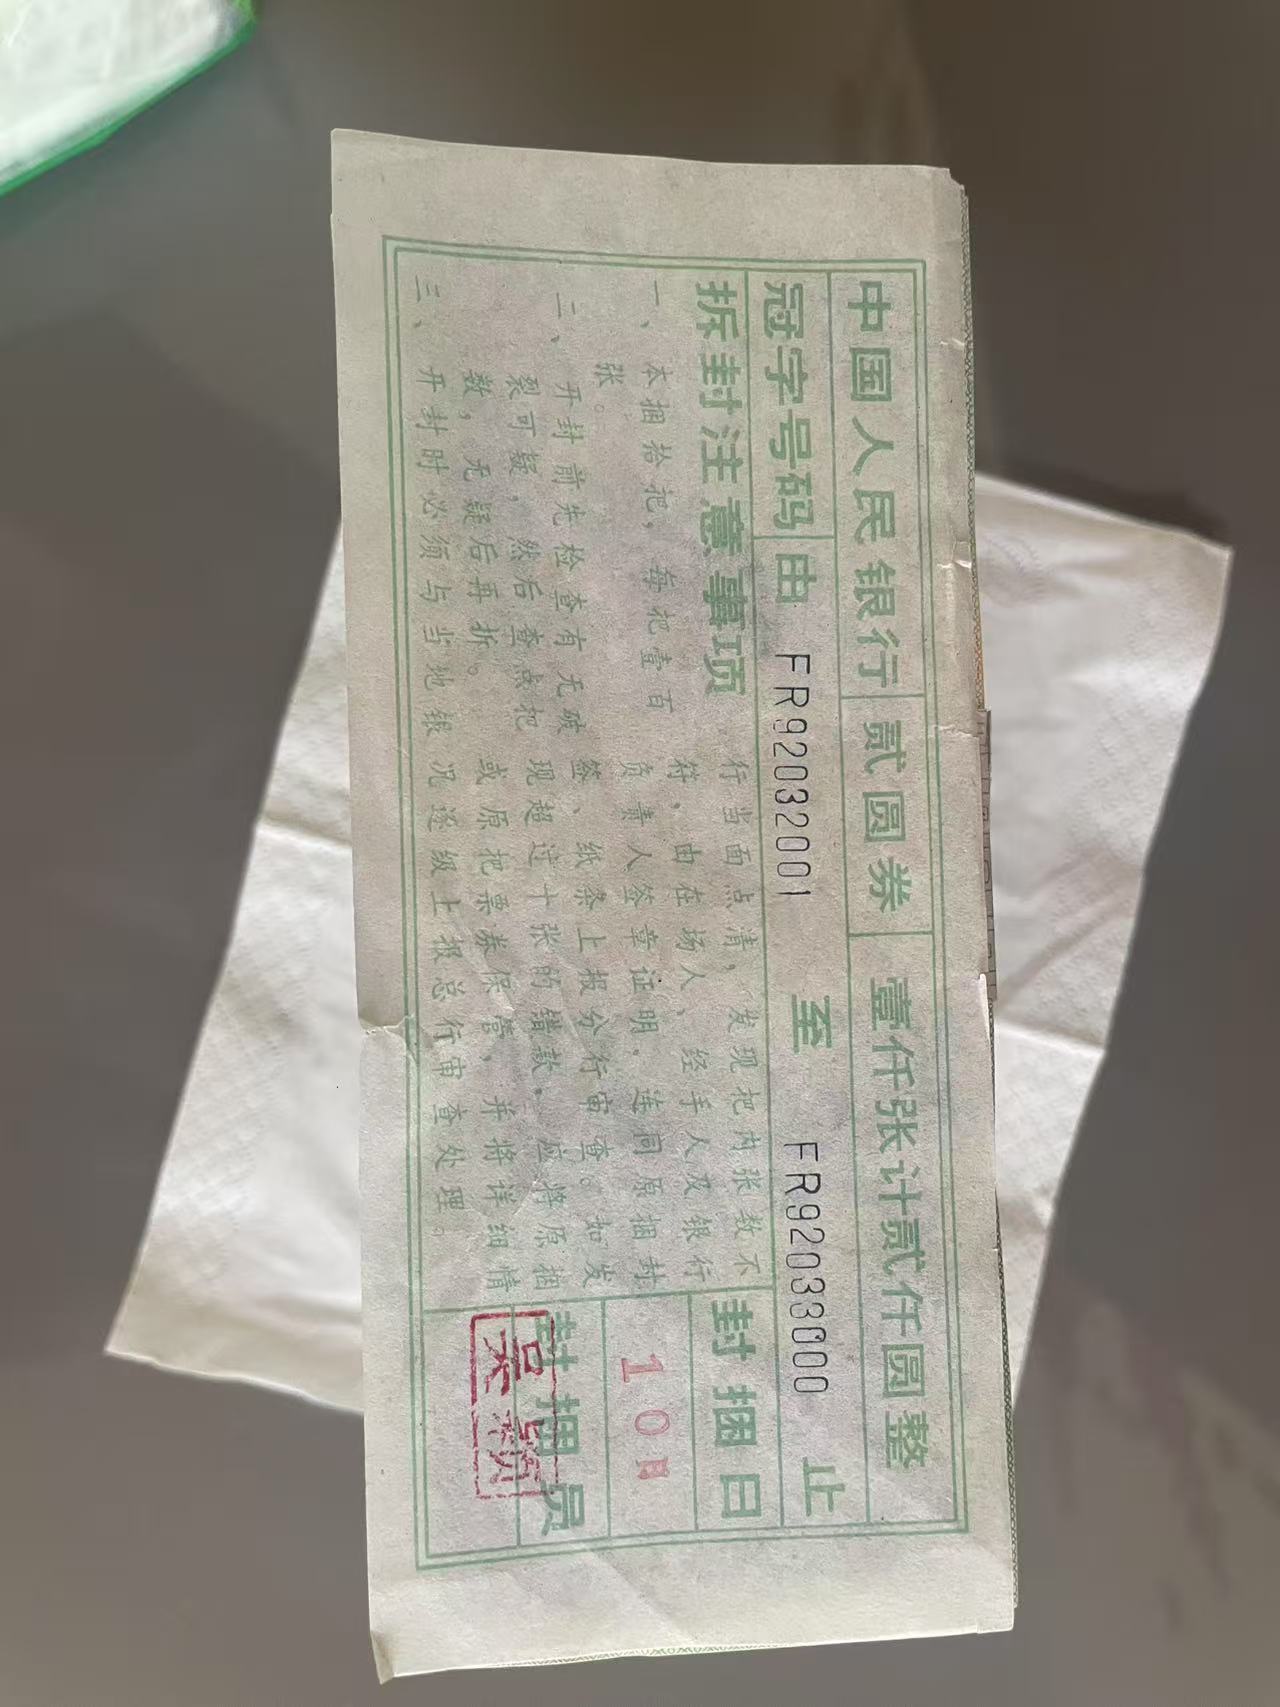 中国人民银行 贰圆券 壹仟张计贰仟圆整
冠字号码 由 FR92032001 至 FR92033000 止
拆封注意事项
一、本捆拾把，每把壹百
张。
二、开封前先检查有无破
裂可疑，然后查点把
数，无疑后再拆。
三、开封时必须与当地银
行当面点清，发现把内张数不
符，由在场人、经手人及银行
负责人签章证明，连同原捆封
签、纸条上报分行审查。如发
现超过十张的错款，应将原捆
或原把票券保管，并将详细情
况逐级上报总行审查处理。
封捆日
10月
封捆员